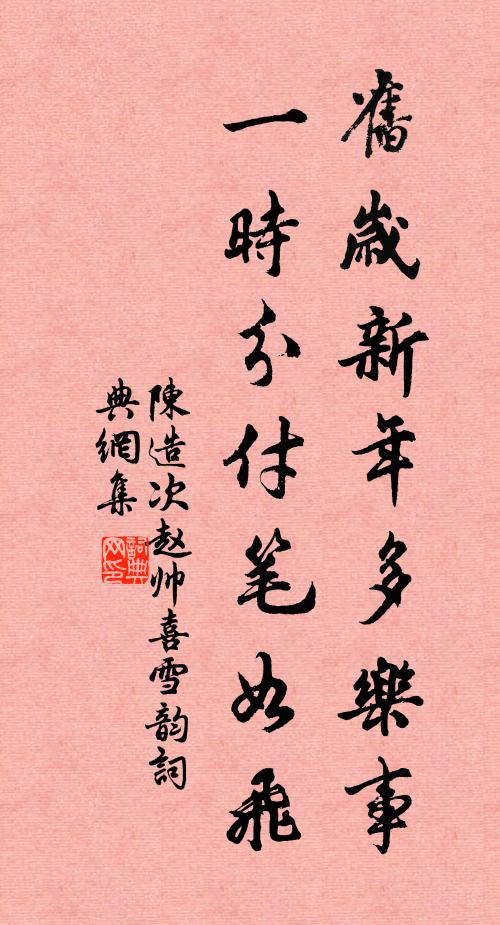 舊歲新年多樂事
一時分付笔如飛
陳造次赵帅喜雪韵詞
典網集
詞典
网印